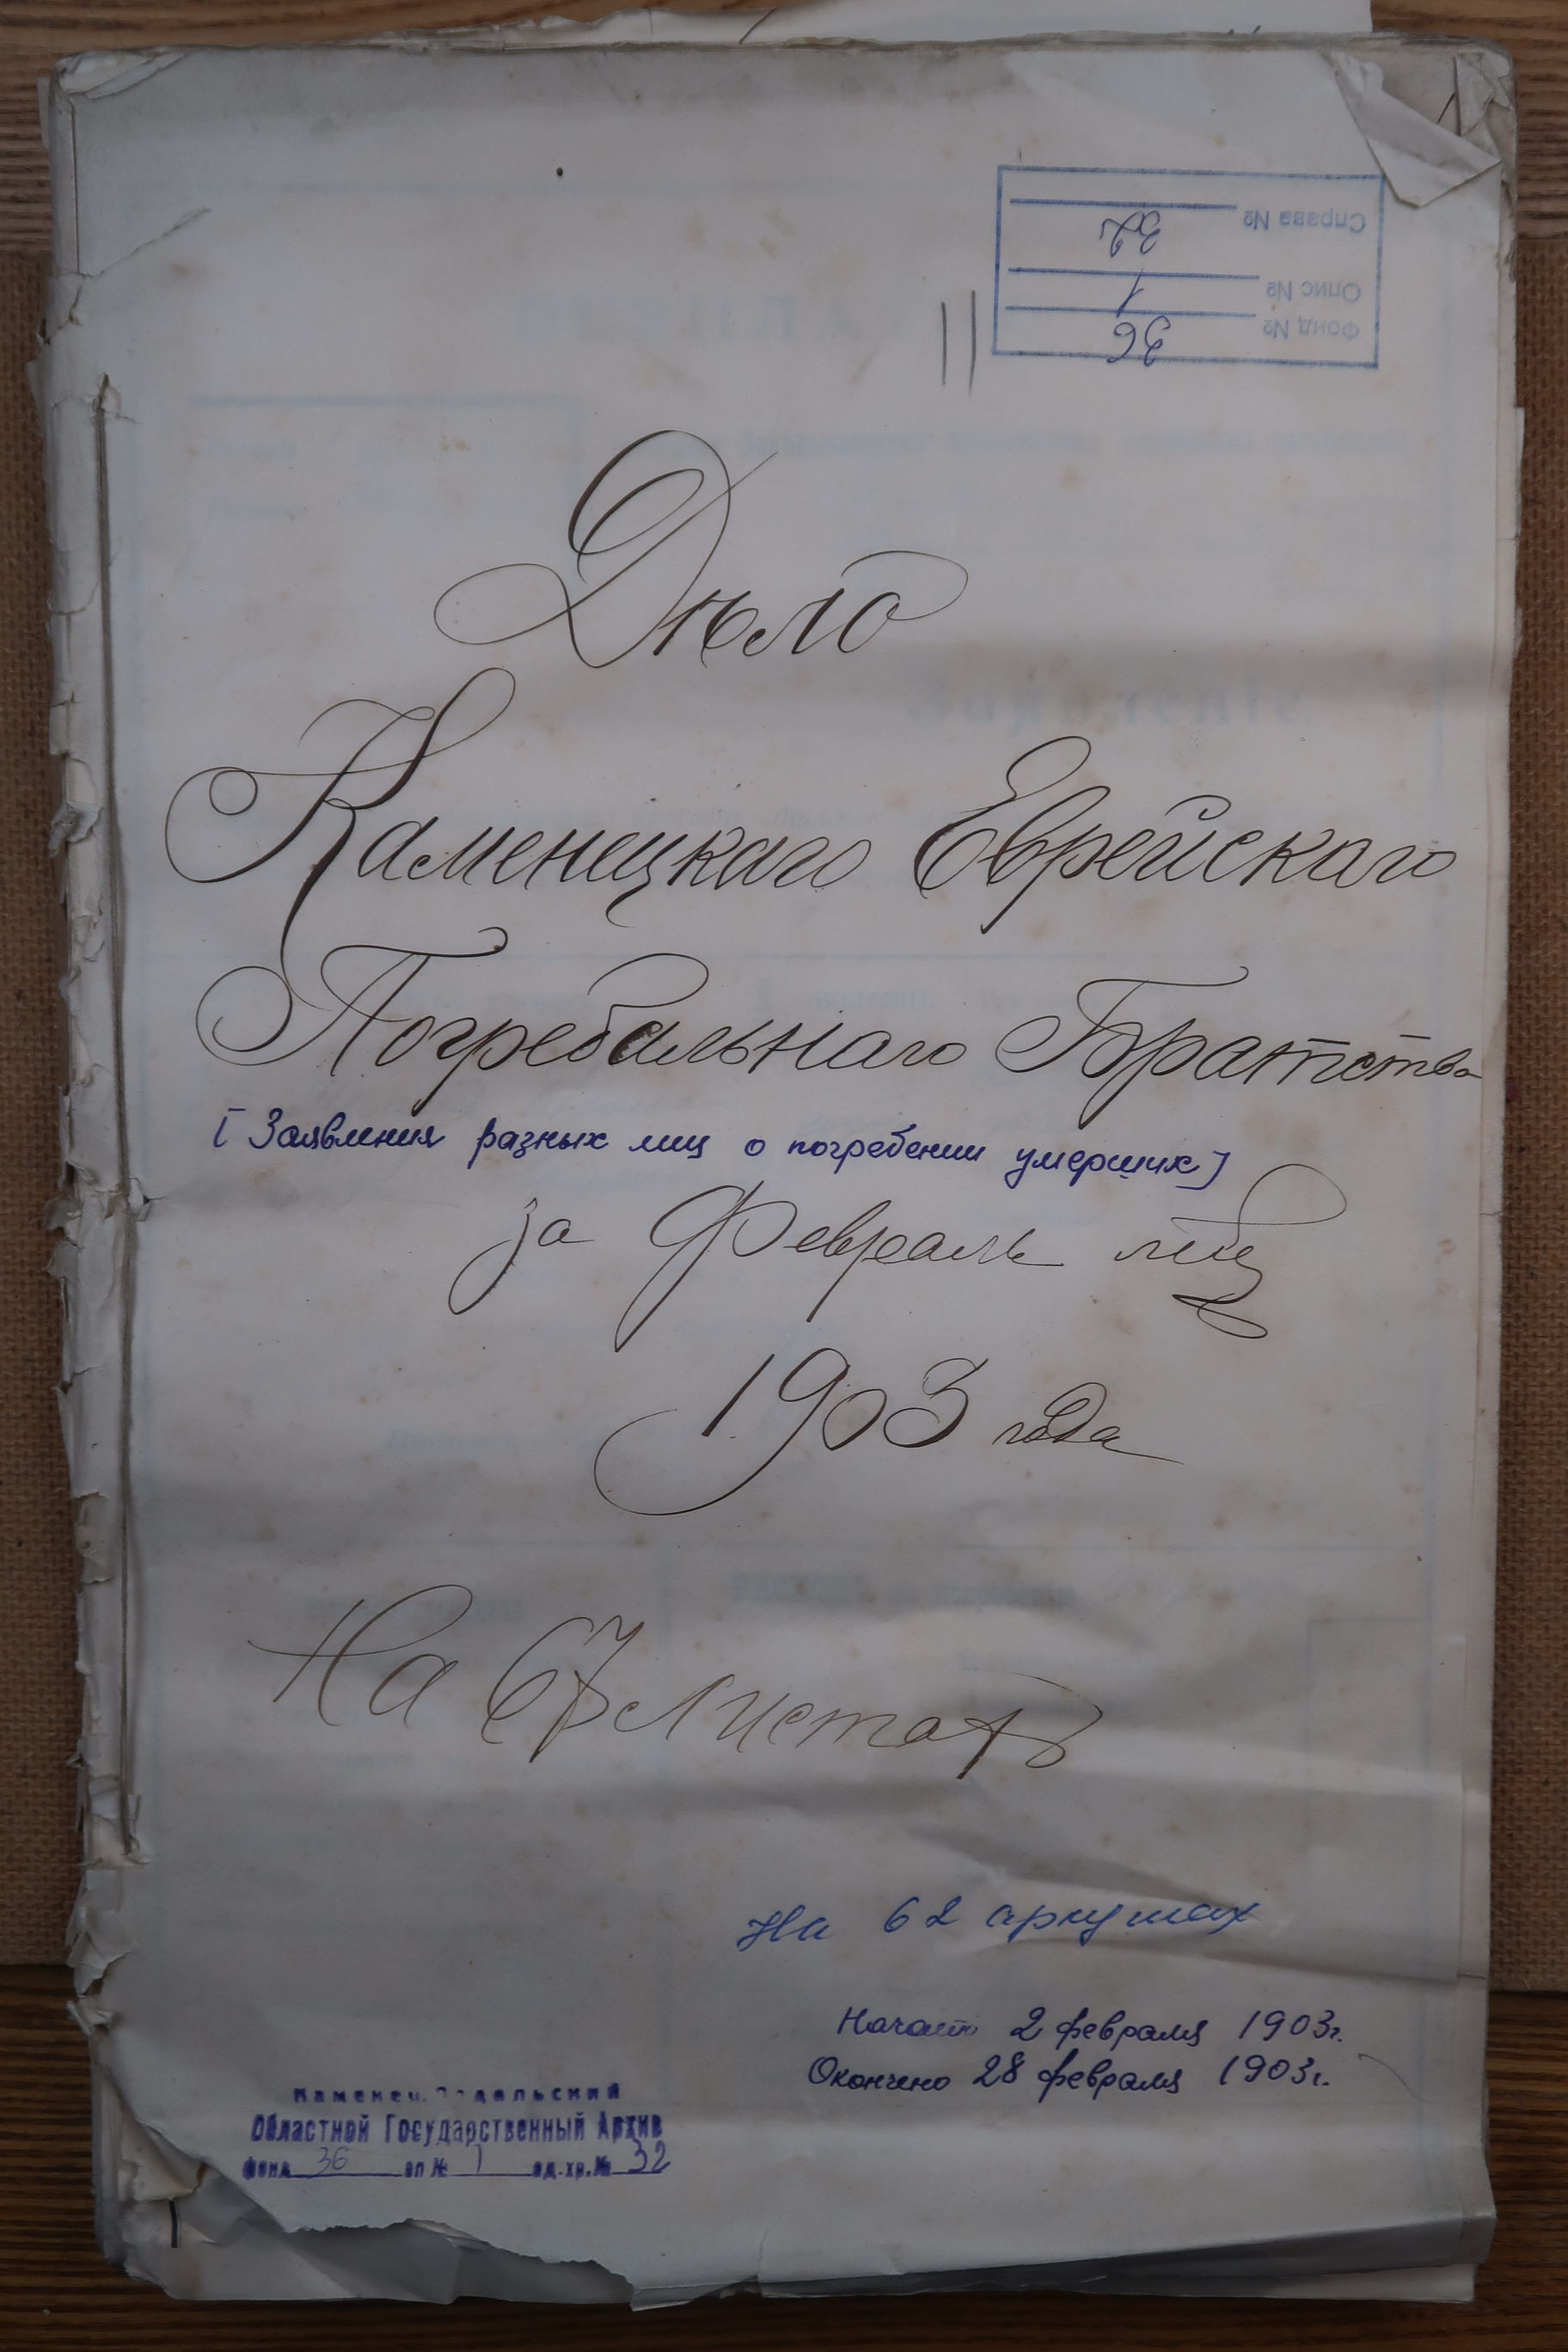 Справа № 32
Опис № 1
Фонд № 36
Дѣло
Каменецкаго Еврейскаго
Погребальнаго Братства
[Заявления разных лиц о погребении умерших]
за Февраль мѣц
1903 года
На 67 листахъ
На 62 аркушах
Начато 2 февраля 1903г.
Окончено 28 февраля 1903г.
Каменец-Подольский
Областной Государственный Архив
фонд 36 оп № 1 ед.хр.№ 32